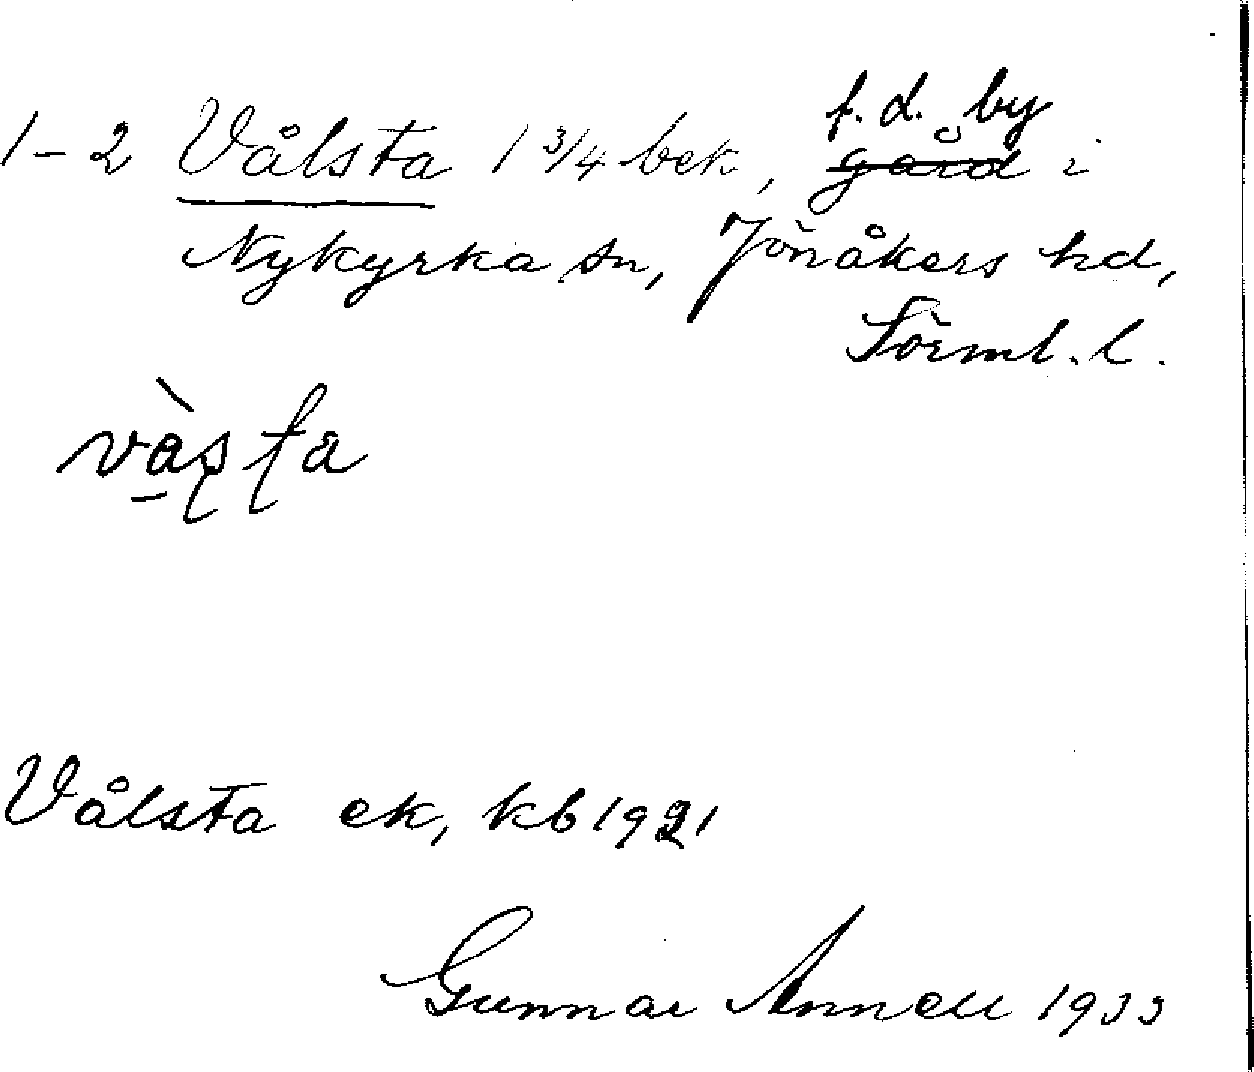 f. d. by
1-2 Vålsta 1 3/4 bek, gård i
Nykyrka sn, Jönåkers hd,
Sörml. l.
Vålsta ek, kb 1921
Gunnar Annell 1933